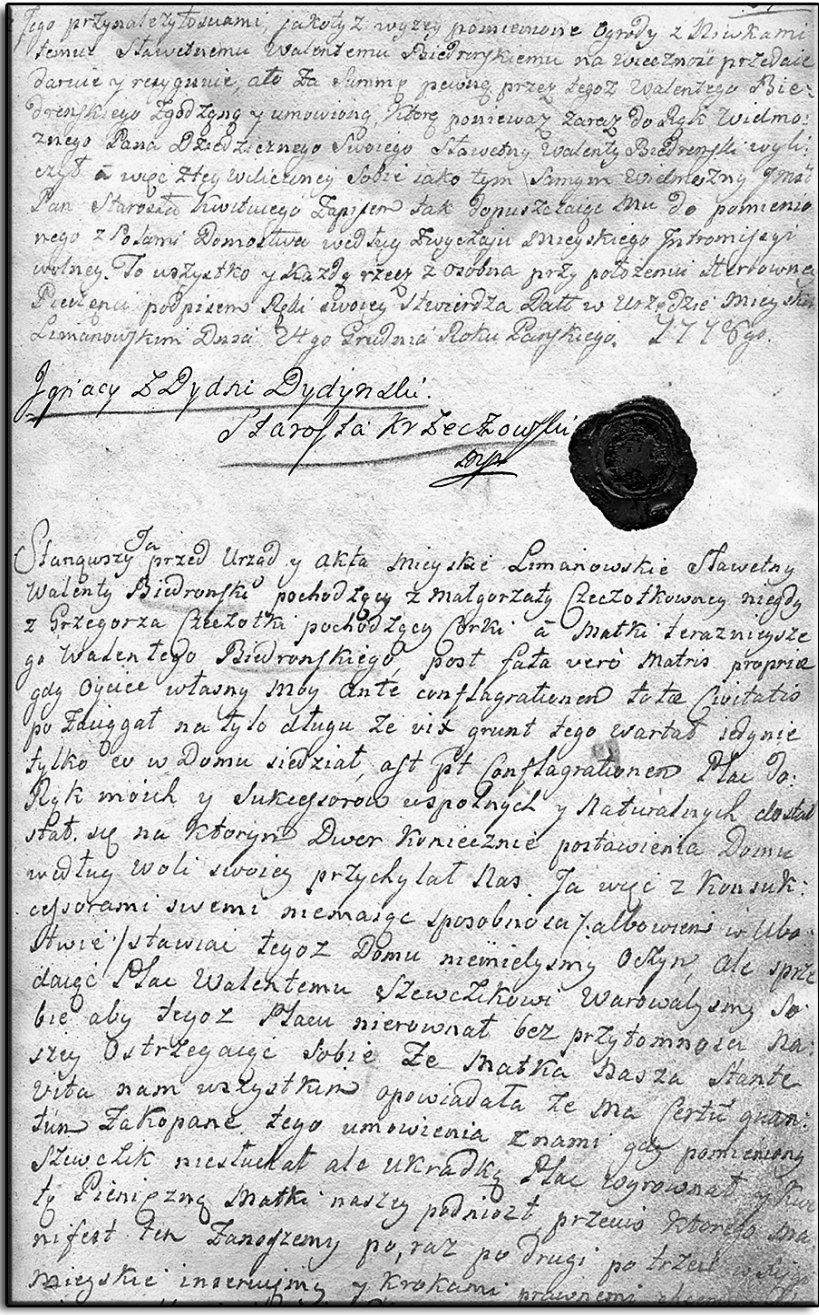 Jego przynależytosciami, jakoty z wyzey pomienione Ogrody z Niwkami
temu Sławetnemu Walentemu Biedronskiemu na wiecznosc przedaie
daruie y resygnuie, ato za Summę pewną przez tegoz Walentego Bie-
dronskiego Zgodzoną y umowioną, Którą poniewaz zaraz do Rąk Wielmo:
znego Pana Dziedzicznego Swoiego Sławetny Walenty Biedronski wyli:
czył à więc z tey wyliczoney Sobie iako tym Samym Wielmożny Jmsc
Pan Starosta Kwituiego Zapisem tak dopuszczaiąc mu do pomienio
nego z Polami Domostwa według Zwyczaiu Mieyskiego Intromissyi
wolney. To wszystko y Kazdą rzecz z osobna przy położeniu Herbowney
Pieczęci podpisem Ręki swoiey stwierdza Datt w Urzędzie Mieyskim
Limanowskim Dnia 24go Grudnia Roku Panskiego. 1776go.
Ignacy z Dydni Dydynski.
Starosta Krzeczowski
mp
Stanąwszy Ja przed Urząd y Akta Mieyskie Limanowskie Sławetny
Walenty Biedronski pochodzący z Małgorzaty Czeczotkowney niegdy
z Grzegorza Czeczotki pochodzący Corki à Matki terazniejsze
go Walentego Biedronskiego, post fata verò Matris propriæ
gdy Oyciec własny moy Ante conflagrationem totæ Civitatis
po Zaciągał na tylo długu ze vix grunt tego wartał iedynie
tylko co w Domu siedział, ast pt Conflagrationem Plac Do:
Rąk moich y Sukcessorow wspolnych y Naturalnych dostał
stał. się na Ktorym Dwor Koniecznie postawienia Domu
według woli swoiey przychylał Nas. Ja więc z Konsuk:
cessorami swemi niemaiąc sposobnosci /: albowiem w Ubo
stwie :/ stawiac tegoz Domu niemielysmy Oczym, ale sprze
daiąc Plac Walentemu Szewczkowi Warowalysmy So
bie aby tegoz Placu nierownał bez przytomnosci Na:
szey Ostrzegaiąc Sobie Ze Matka Nasza Stante
vita nam wszystkim opowiadała ze ma Certũ quan:
tum Zakopane, tego umowienia znami gdy pomieniony
Szewczik niesłuchał ale ukradką Plac wyrownał y Kwo
tę Pienięzną Matki naszey podniozł, przeciw Ktoremu Ma
nifest ten Zanoszemy po, raz po drugi po trzeci
Mieyskie inseruiemy y Krokami prawnemi